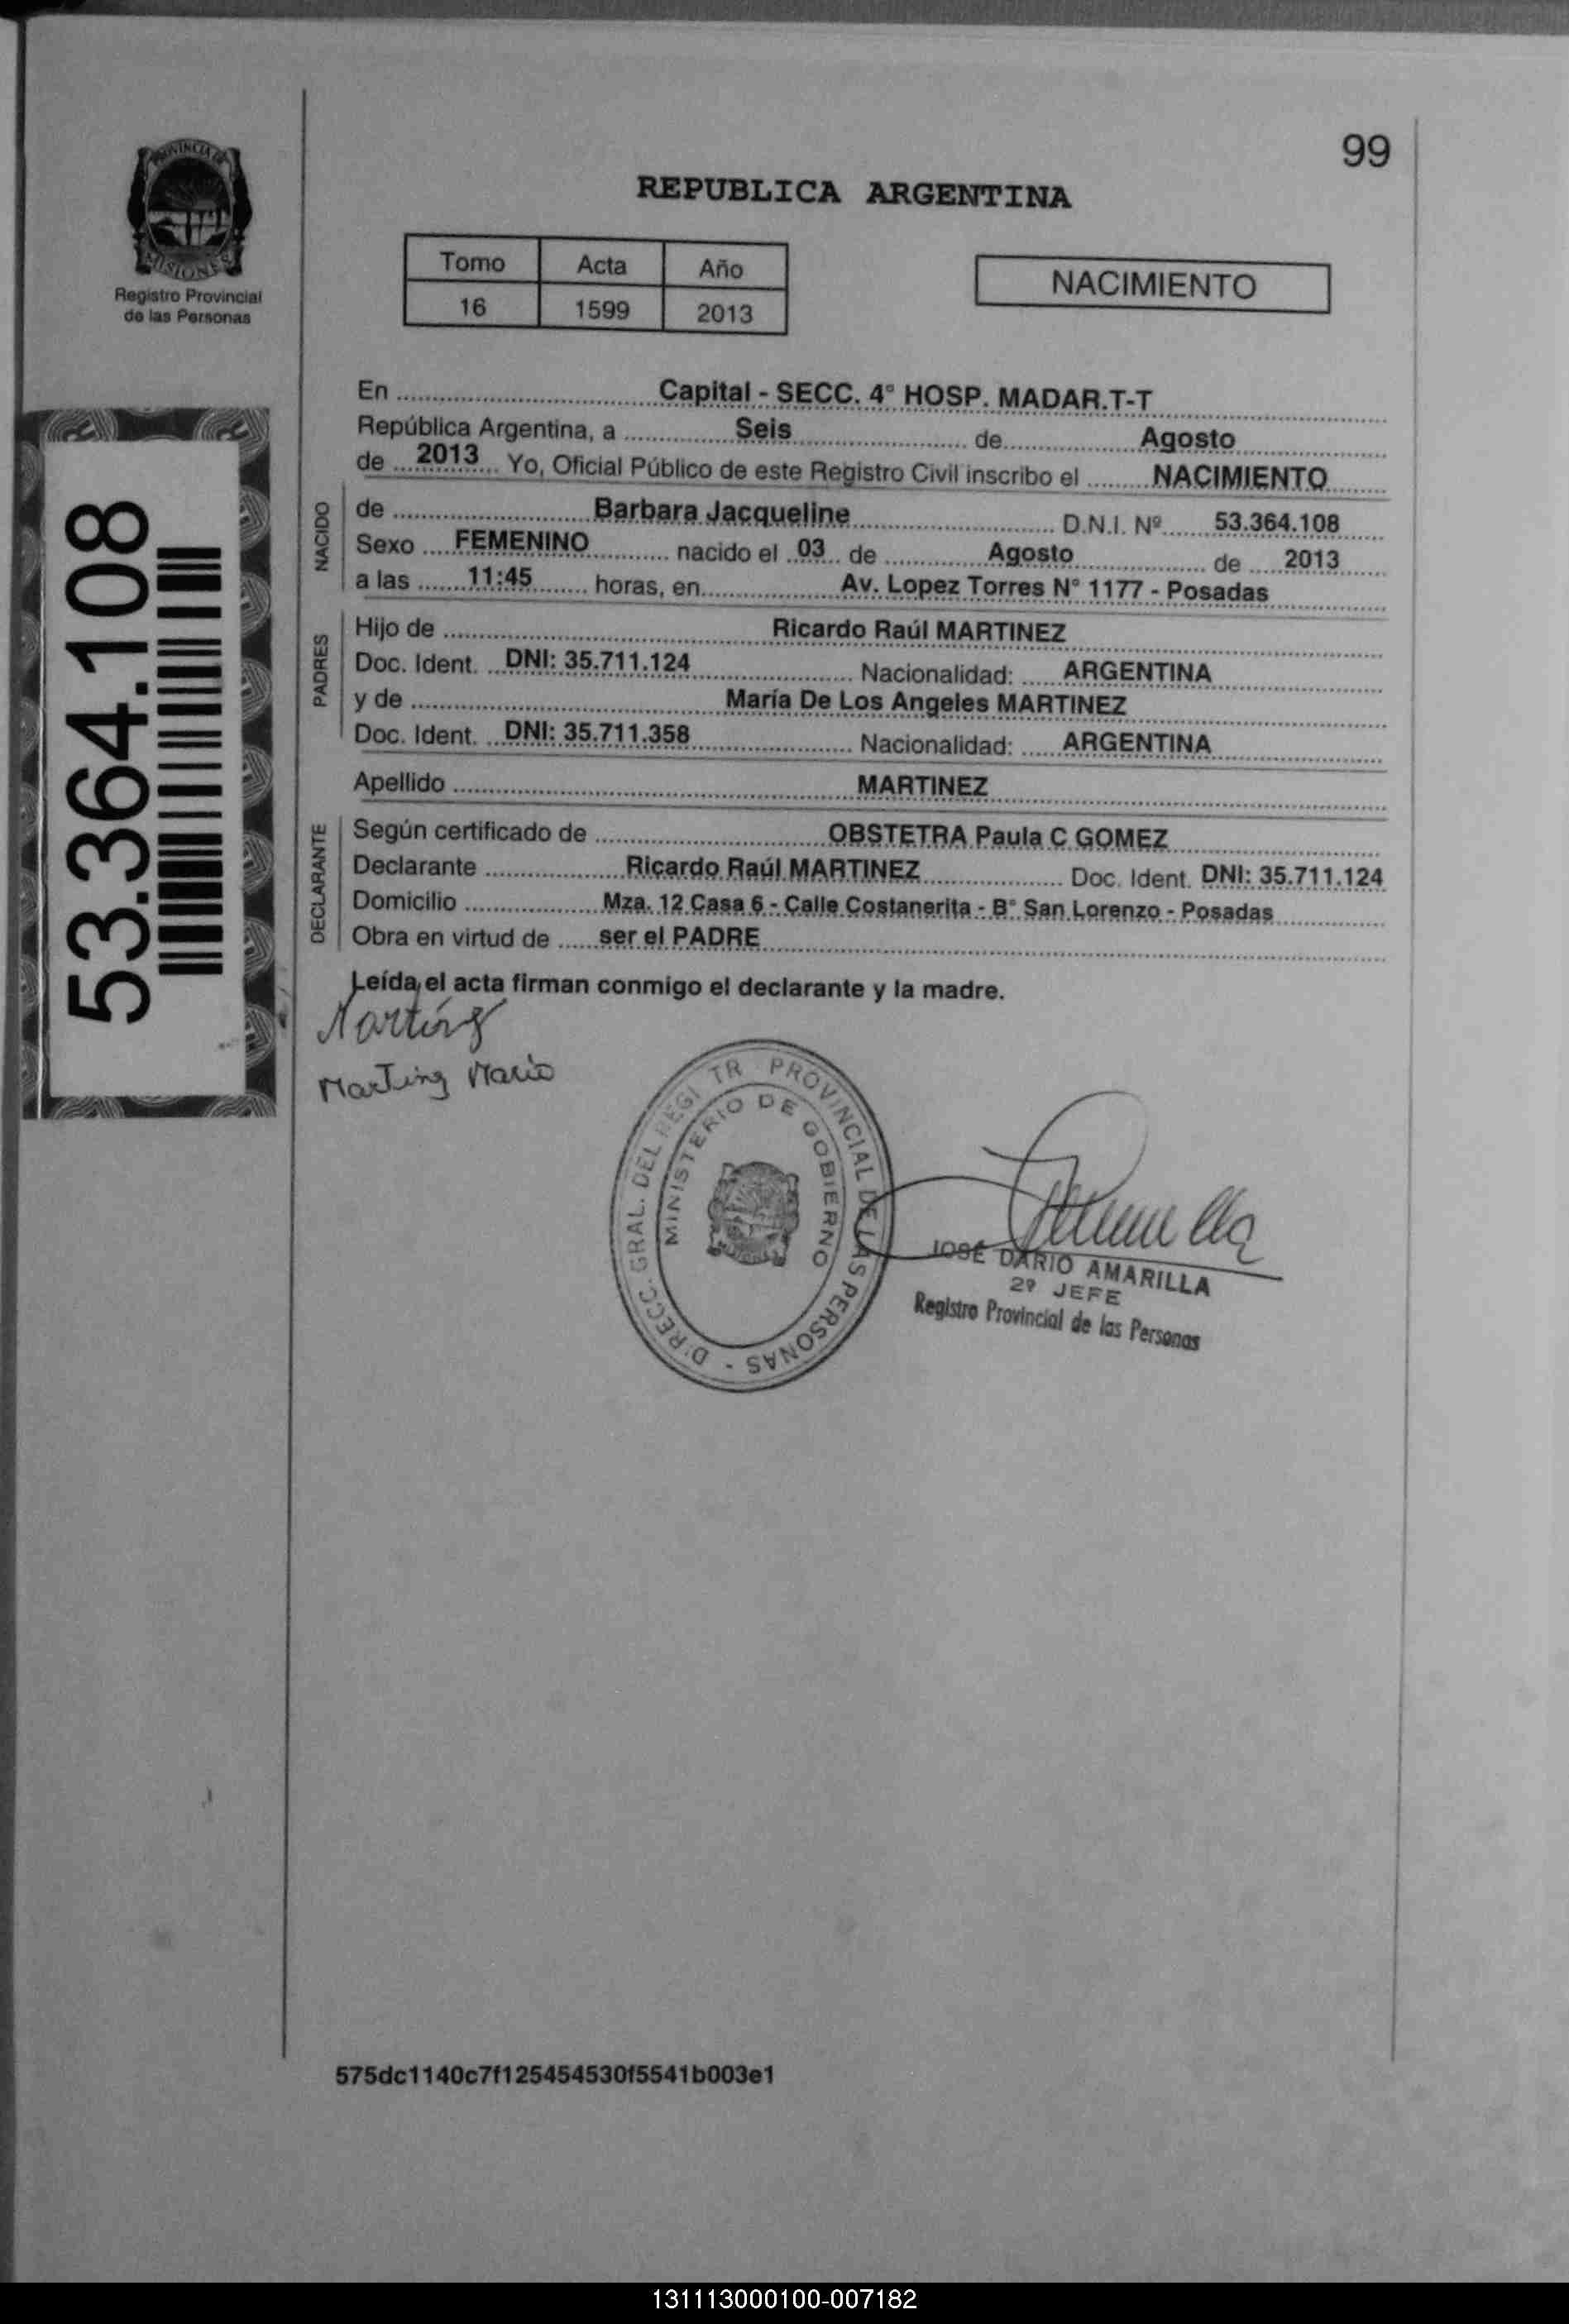 99
REPUBLICA ARGENTINA
PROVINCIA DE
MISIONES
Registro Provincial
de las Personas
Tomo Acta Año
16 1599 2013
NACIMIENTO
53.364.108
En Capital - SECC. 4° HOSP. MADAR.T-T
República Argentina, a Seis de Agosto
de 2013 Yo, Oficial Público de este Registro Civil inscribo el NACIMIENTO
NACIDO
de Barbara Jacqueline D.N.I. Nº 53.364.108
Sexo FEMENINO nacido el 03 de Agosto de 2013
a las 11:45 horas, en Av. Lopez Torres N° 1177 - Posadas
PADRES
Hijo de Ricardo Raúl MARTINEZ
Doc. Ident. DNI: 35.711.124 Nacionalidad: ARGENTINA
y de María De Los Angeles MARTINEZ
Doc. Ident. DNI: 35.711.358 Nacionalidad: ARGENTINA
Apellido MARTINEZ
DECLARANTE
Según certificado de OBSTETRA Paula C GOMEZ
Declarante Ricardo Raúl MARTINEZ Doc. Ident. DNI: 35.711.124
Domicilio Mza. 12 Casa 6 - Calle Costanerita - B° San Lorenzo - Posadas
Obra en virtud de ser el PADRE
Leída el acta firman conmigo el declarante y la madre.
DIRECC. GRAL. DEL REGI TR PROVINCIAL DE LAS PERSONAS -
MINISTERIO DE GOBIERNO
JOSE DARIO AMARILLA
2º JEFE
Registro Provincial de las Personas
575dc1140c7f125454530f5541b003e1
131113000100-007182